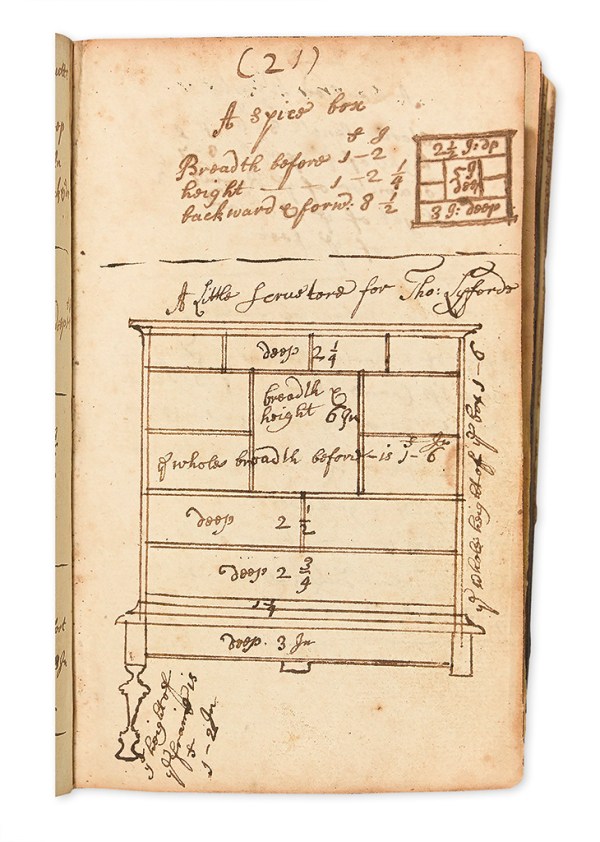 (21)
A Spice box
f J
Breadth before 1-2
height 1-2 1/4
backward & forw: 8 1/2
2 1/2 J: dp
5 J
deep
3 J: deep
A Little Scrustore for Tho: Lyfords
deep 2 1/4
breadth &
height 6 Jn
f Jn
ye whole breadth before is 1-6
deep 2 1/2
deep 2 3/4
1 1/4
deep 3 Jn
ye whole height of ye box 1-6
ye height of
ye frame is
f
1-2 Jn